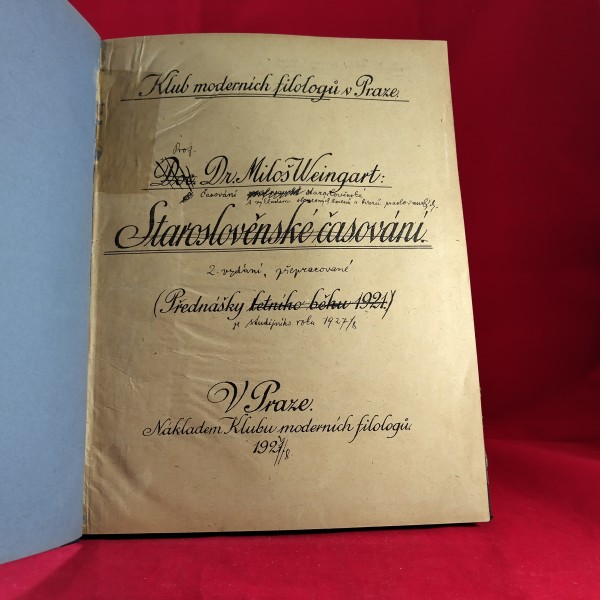 Klub moderních filologů v Praze.
Prof.
Doc. Dr. Miloš Weingart:
časování staroslověnské
s výkladem slovesných kmenů a tvarů
Staroslověnské časování.
2. vydání, přepracované
(Přednášky letního běhu 1921.)
ze studijního roku 1927/8
V Praze.
Nákladem Klubu moderních filologů.
1927/8.